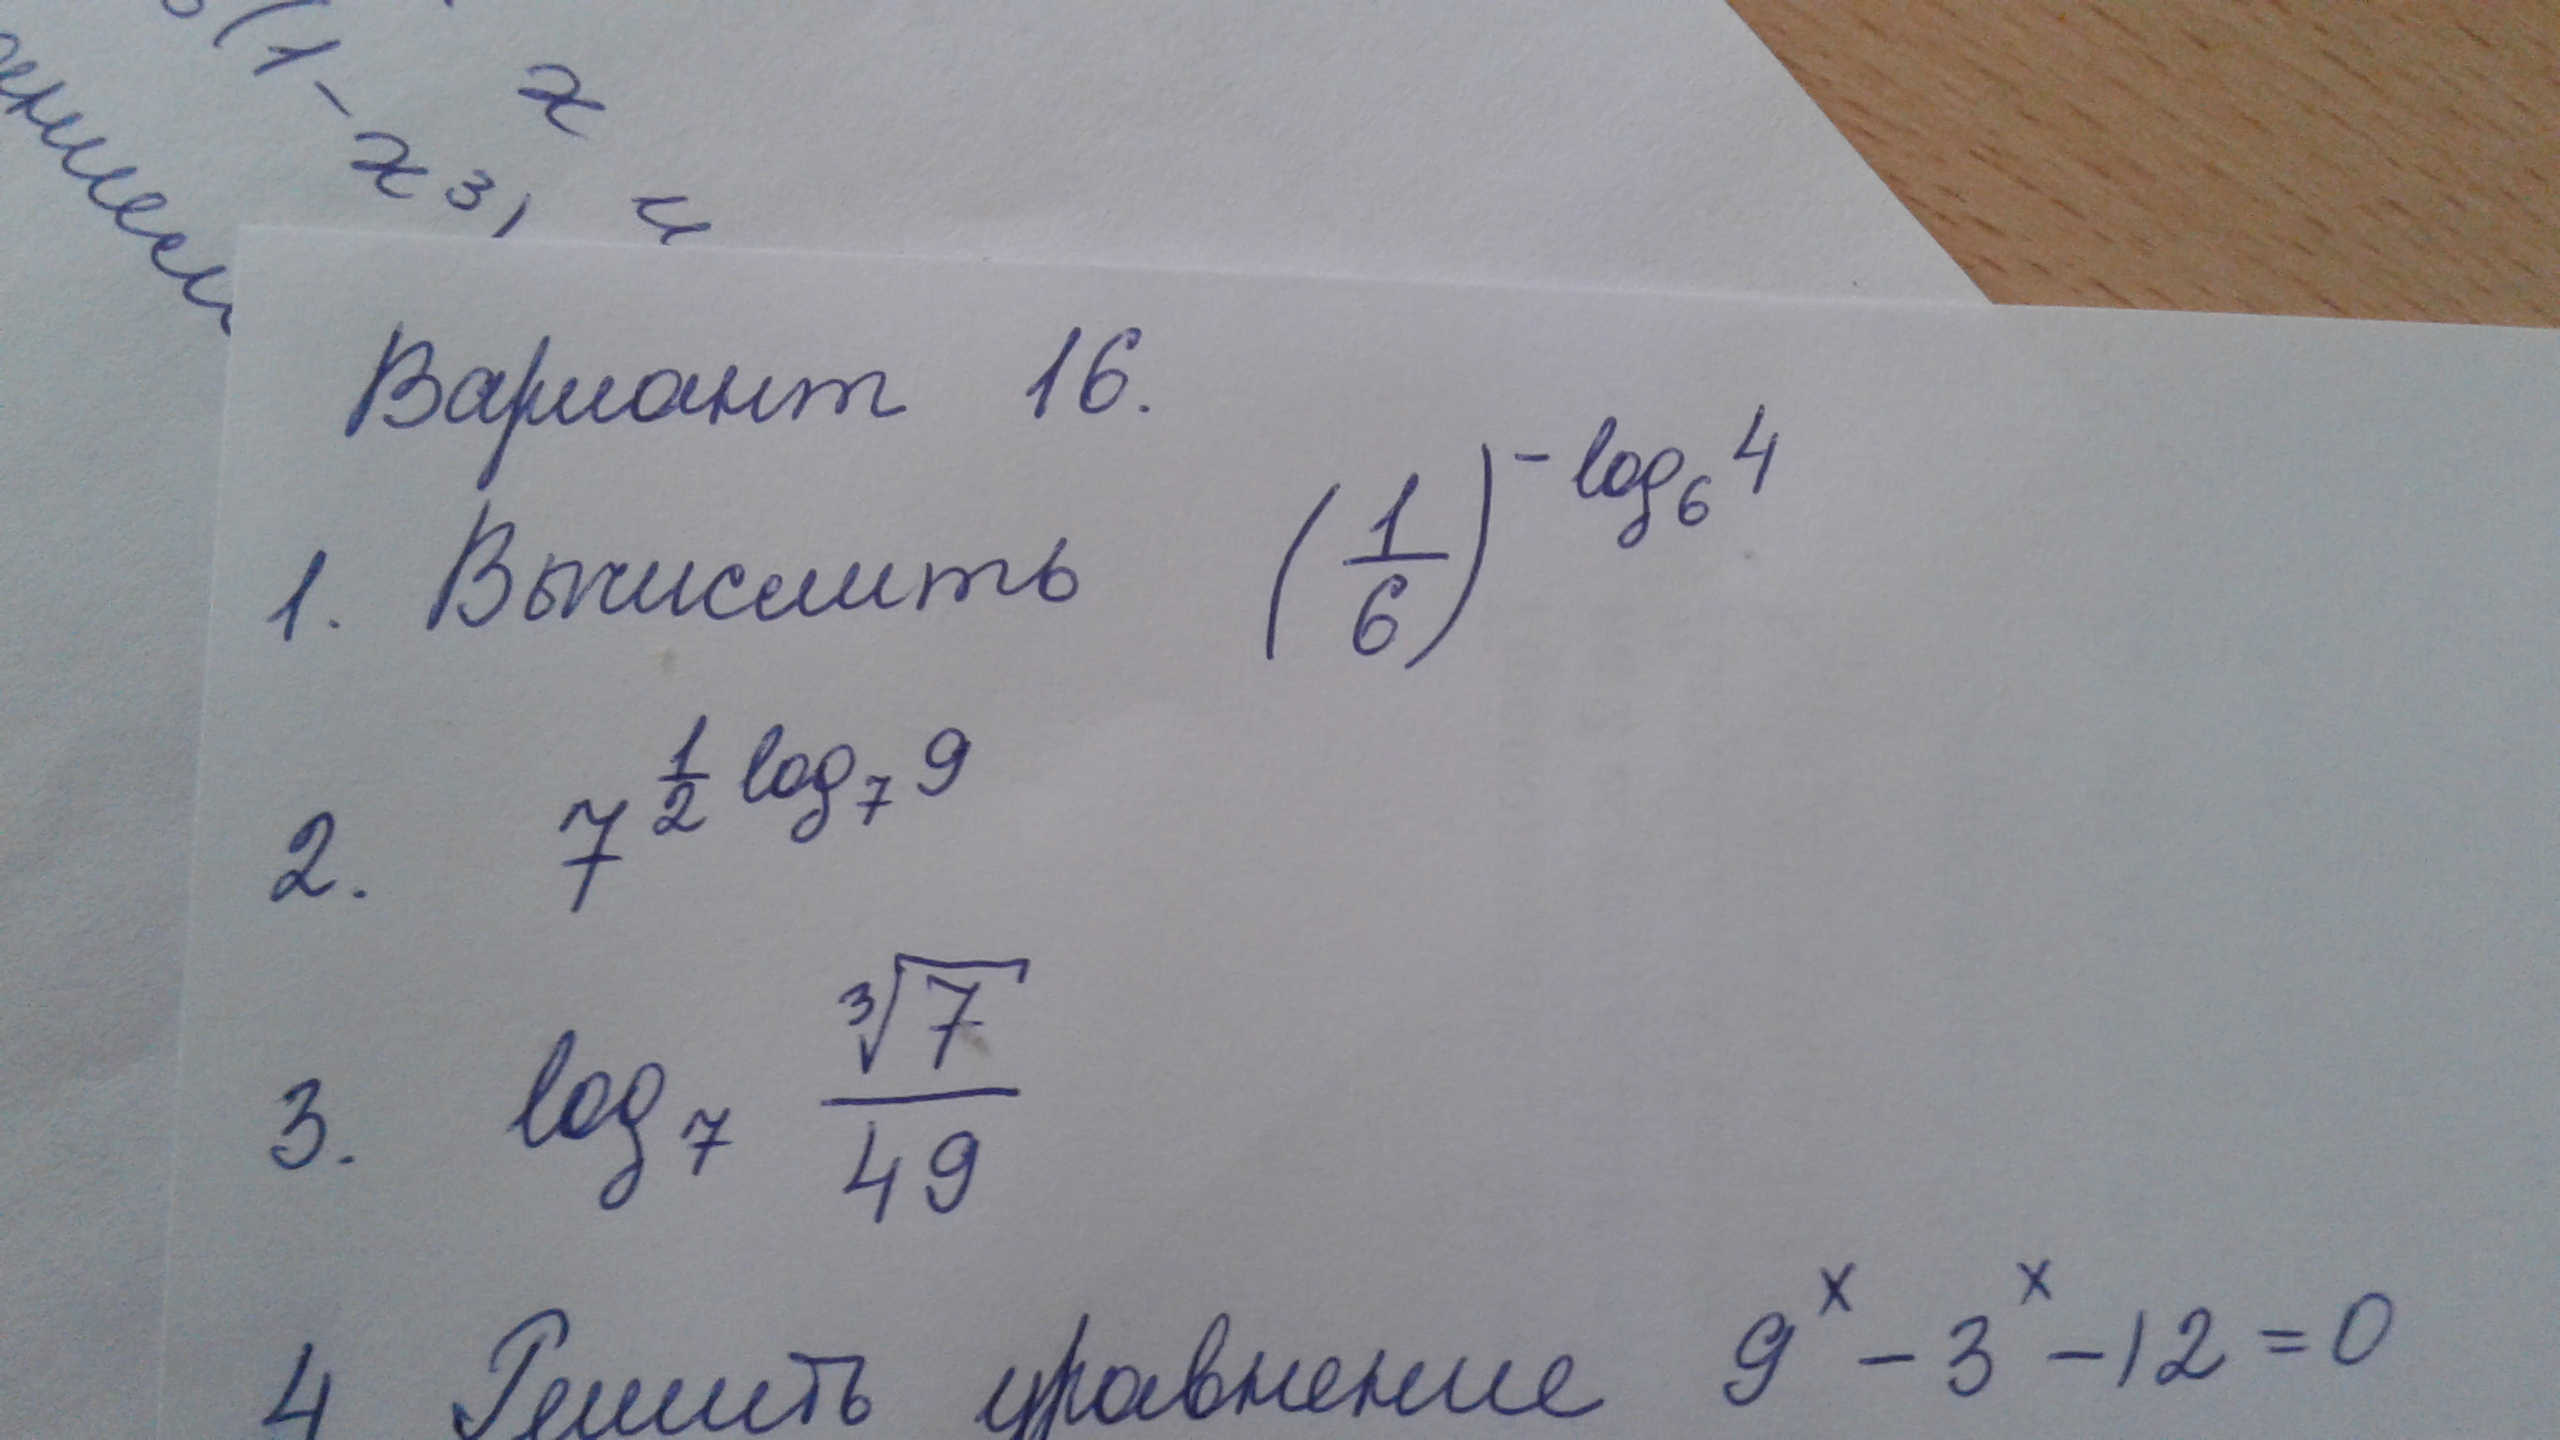 (1-x3,
x
Вариант 16.
1. Вычислить (1/6)^(-log₆4)
2. 7^(1/2 log₇9)
3. log₇ ∛7/49
4 Решить уравнение 9ˣ-3ˣ-12=0